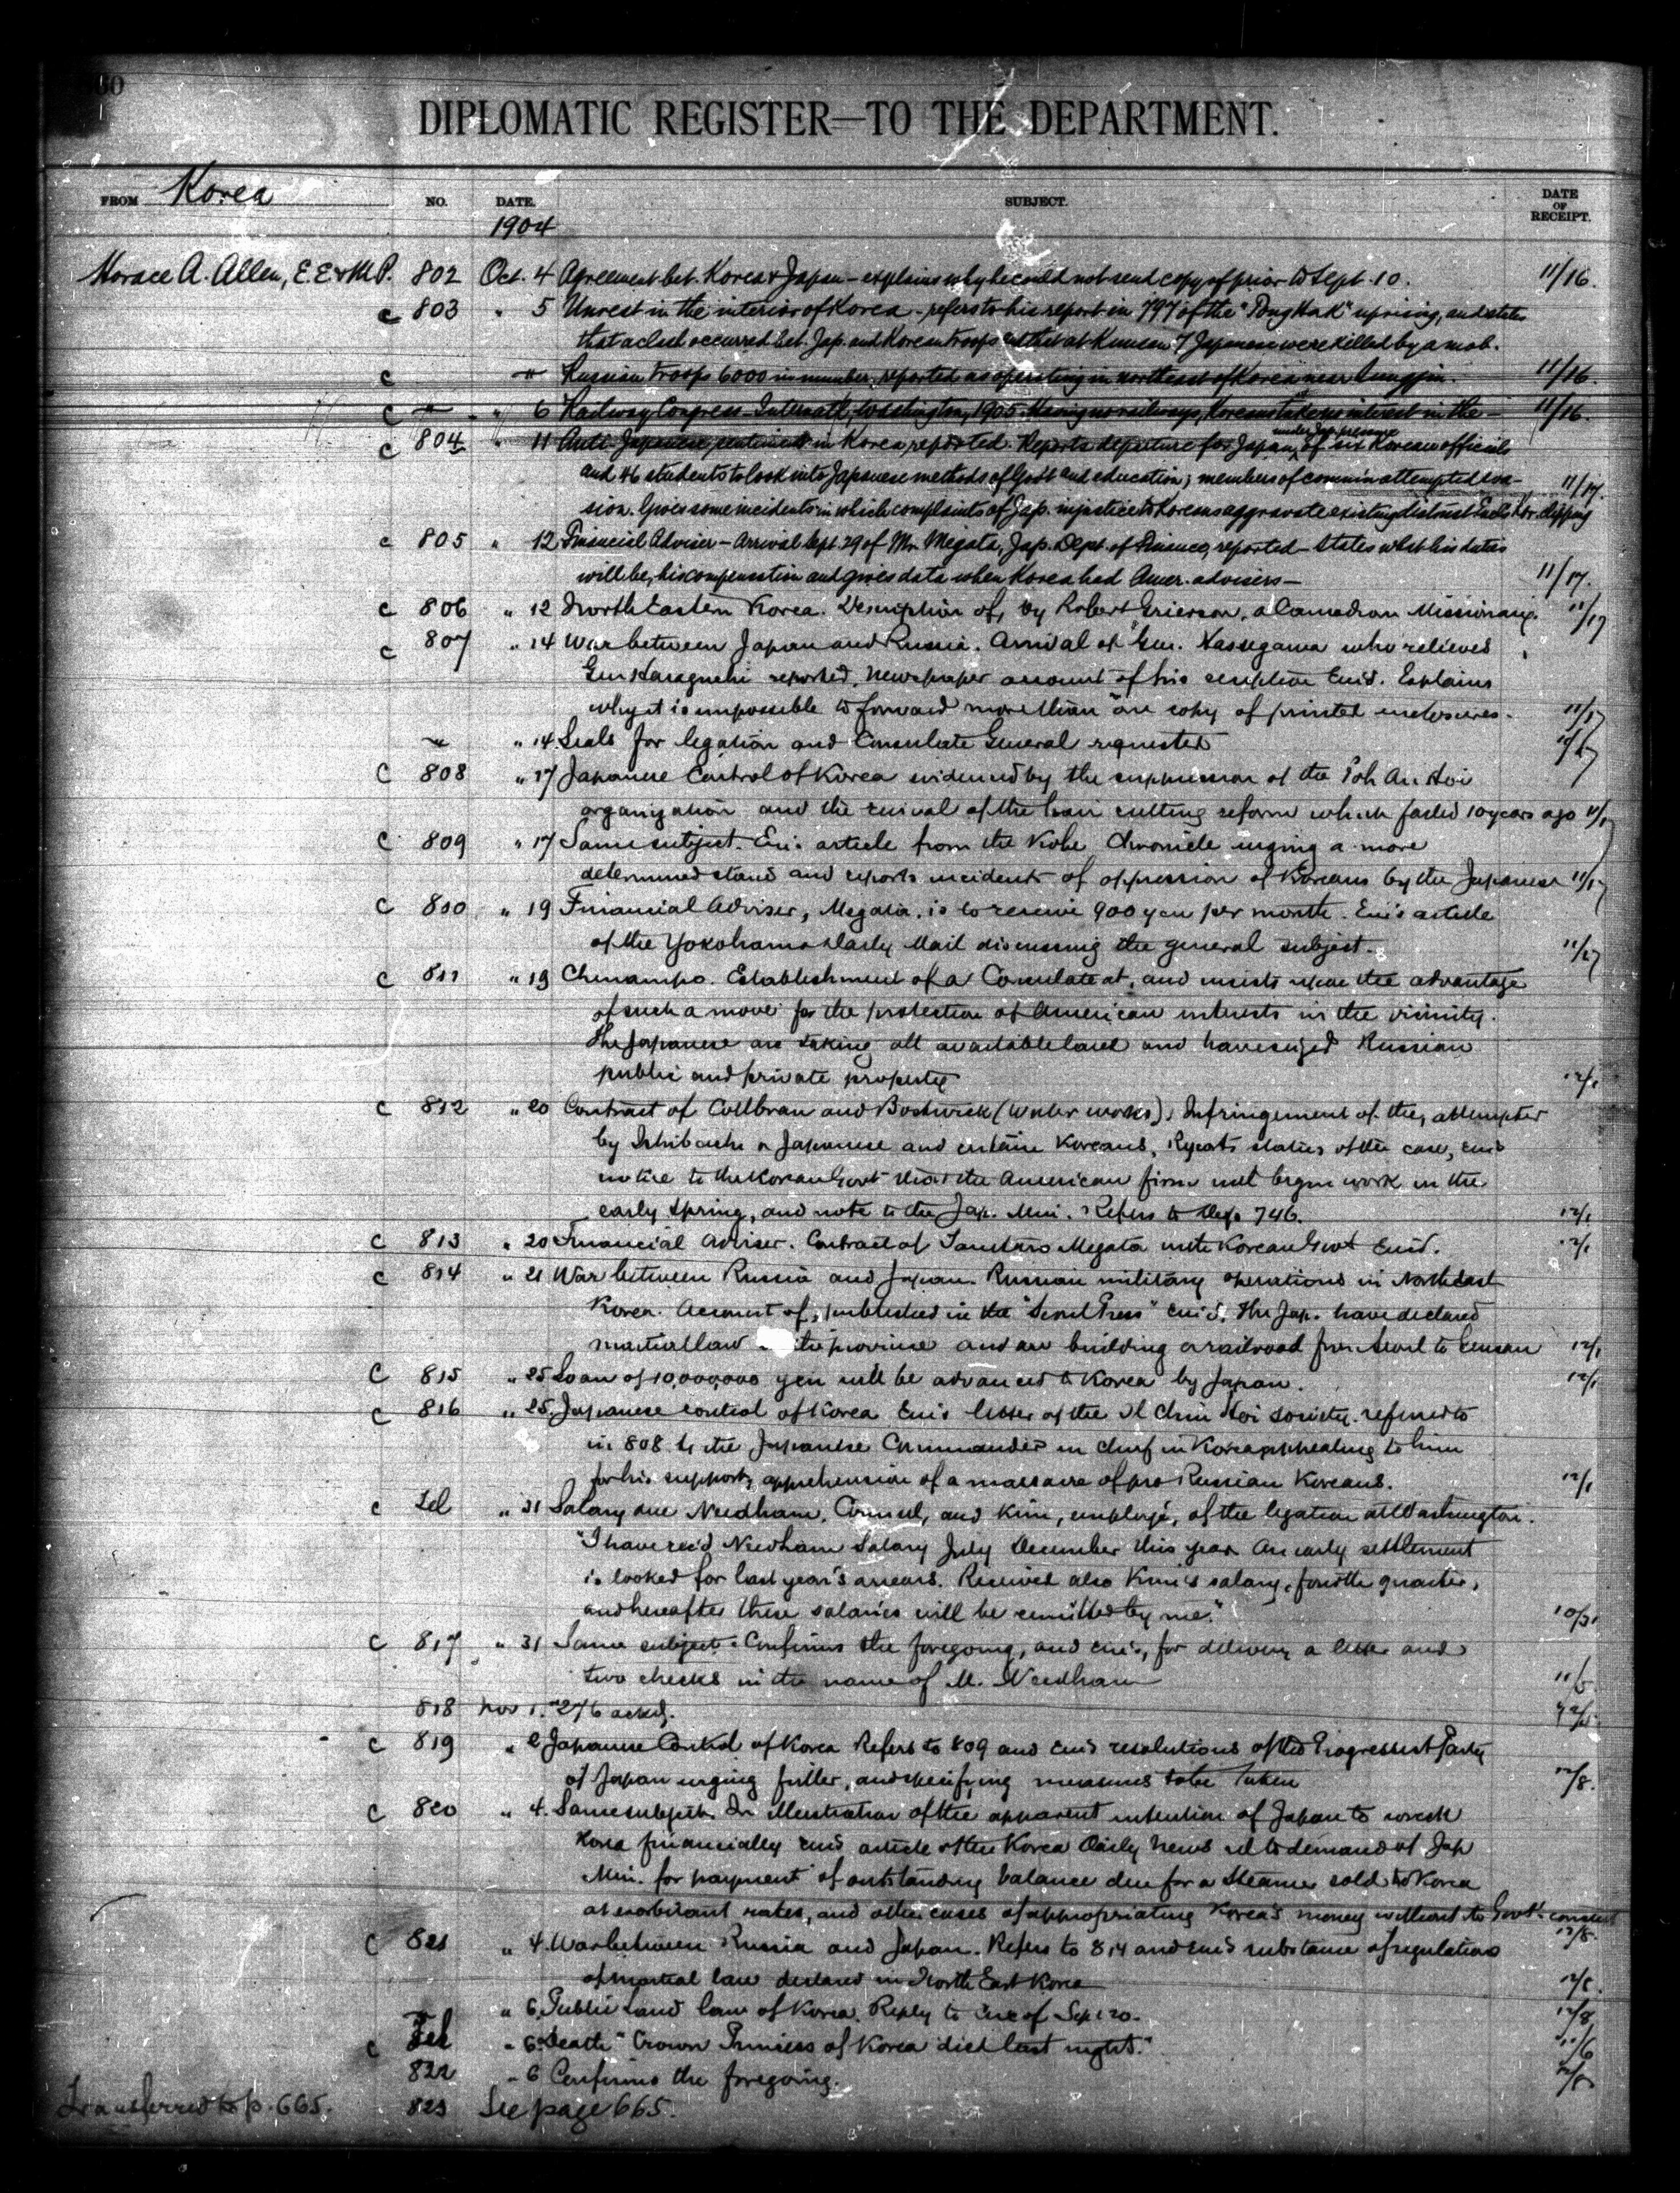 60
DIPLOMATIC REGISTER—TO THE DEPARTMENT.
FROM Korea NO. DATE. SUBJECT. DATE OF RECEIPT.
1904
Horace A. Allen, E.E. & M.P. 802 Oct. 4 Agreement bet. Korea & Japan – explains why he could not send copy of prior to Sept. 10. 11/16.
c 803 " 5 Unrest in the interior of Korea – refers to his report in 797 of the "Tong Hak" uprising, and states
that a clash occurred bet. Jap. and Korean troops and that at Kunsan 7 Japanese were killed by a mob.
c " Russian troops 6000 in number, reported as operating in northeast of Korea near Sungjin. 11/16.
c " " 6 Railway Congress – Internatl, Washington, 1905. Having no railways, Korea takes no interest in the – 11/16.
c 804 " 11 Anti-Japanese sentiment in Korea reported. Reports departure for Japan, under Jap. pressure of six Korean officials
and 46 students to look into Japanese methods of Govt and education; members of comm'n attempted eva-
sion. Gives some incidents in which complaints of Jap. injustice to Koreans aggravate existing distrust Encls Kor. clipping 11/17.
c 805 " 12 Financial Adviser – Arrival Sept. 29 of Mr. Megata, Jap. Dept. of Finance, reported – States what his duties
will be, his compensation and gives data when Korea had Amer. advisers – 11/17.
c 806 " 12 North Eastern Korea. Description of, by Robert Grierson, a Canadian Missionary. 11/17
c 807 " 14 War between Japan and Russia. Arrival of Gen. Hassegawa who relieves
Gen Haraguchi reported. Newspaper account of his reception Encs. Explains
why it is impossible to forward more than one copy of printed enclosures. 11/17
" " 14 Seals for legation and Consulate General requested
C 808 " 17 Japanese Control of Korea evidenced by the suppression of the Poh An Hoi
organization and the revival of the hair cutting reform which failed 10 years ago 11/17
C 809 " 17 Same subject. Encs article from the Kobe Chronicle urging a more
determined stand and reports incidents of oppression of Koreans by the Japanese 11/17
C 810 " 19 Financial Adviser, Megata, is to receive 900 yen per month. Encs article
of the Yokohama Daily Mail discussing the general subject. 11/27
c 811 " 19 Chenampo. Establishment of a Consulate at, and insists upon the advantage
of such a move for the protection of American interests in the vicinity.
The Japanese are taking all available land and have seized Russian
public and private property 12/1
c 812 " 20 Contract of Collbran and Bostwick (Water works). Infringement of the, attempted
by Ishibashi a Japanese and certain Koreans. Reports status of the case, encs
notice to the Korean Govt that the American firm will begin work in the
early spring, and note to the Jap. Min. Refers to desp. 746. 12/1
c 813 " 20 Financial Adviser. Contract of Tanetaro Megata with Korean Govt Encs. 12/1
c 814 " 21 War between Russia and Japan. Russian military operations in Northeast
Korea. Account of, published in the "Seoul Press" encs. The Jap. have declared
martial law province and are building a railroad from Seoul to Gensan 12/1
C 815 " 25 Loan of 10,000,000 yen will be advanced to Korea by Japan. 12/1
c 816 " 25 Japanese control of Korea Encs letter of the Il Chin Hoi Society referred to
in 808 to the Japanese Commander in chief in Korea appealing to him
for his support, apprehension of a massacre of pro Russian Koreans. 12/1
c Tel " 31 Salary due Needham, Counsel, and Kim, employé, of the legation at Washington.
"I have rec'd Needham salary July December this year An early settlement
is looked for last year's arrears. Received also Kim's salary, fourth quarter,
and hereafter these salaries will be remitted by me." 10/31
C 817 " 31 Same subject. Confirms the foregoing, and encs, for delivery a letter and
two checks in the name of M. Needham
818 Nov 1. 276 ackd.
c 819 " 2 Japanese Control of Korea Refers to 809 and encs resolutions of the Progressist Party
of Japan urging fuller, and specifying measures to be taken 12/8.
C 820 " 4. Same subject. In illustration of the apparent intention of Japan to wreck
Korea financially encs article of the Korea Daily News rel to demand of Jap
Min. for payment of outstanding balance due for a Steamer sold to Korea
at exorbitant rates, and other cases of appropriating Korea's money without its Govt's consent 12/8.
C 821 " 4. War between Russia and Japan. Refers to 814 and encs substance of regulations
of martial law declared in North East Korea 12/8.
" 6. Public Land law of Korea. Reply to Circ of Sept 20. 12/8
c Tel " 6. Death "Crown Princess of Korea died last night." 11/6
822 " 6 Confirms the foregoing. 12/8
Transferred to p. 665. 823 See page 665.